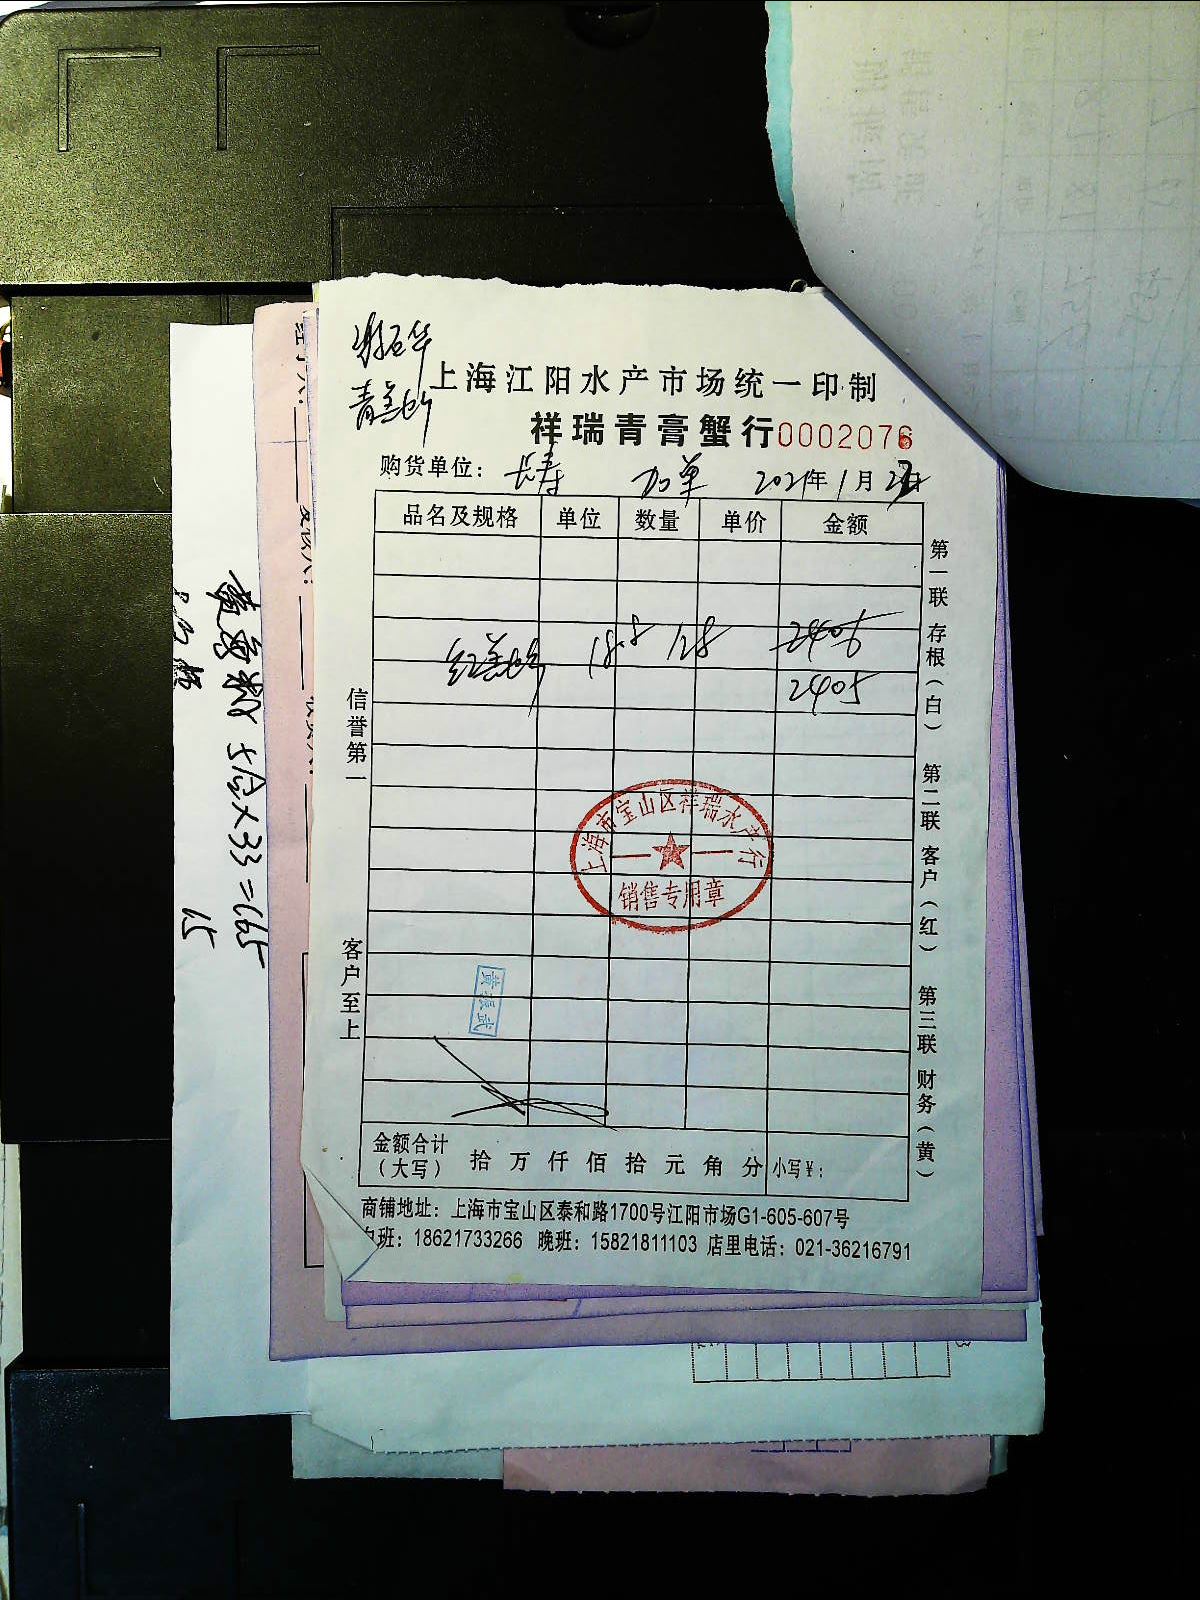 上海江阳水产市场统一印制
祥瑞青膏蟹行0002076
购货单位： 长寿 加单 2021年1月2日
品名及规格 单位 数量 单价 金额
2405
18.5 128
2405
信誉第一
客户至上
第一联 存根（白） 第二联 客户（红） 第三联 财务（黄）
上海市宝山区祥瑞水产行
销售专用章
金额合计
（大写） 拾 万 仟 佰 拾 元 角 分 小写¥：
商铺地址：上海市宝山区泰和路1700号江阳市场G1-605-607号
白班：18621733266 晚班：15821811103 店里电话：021-36216791
x33=165
15